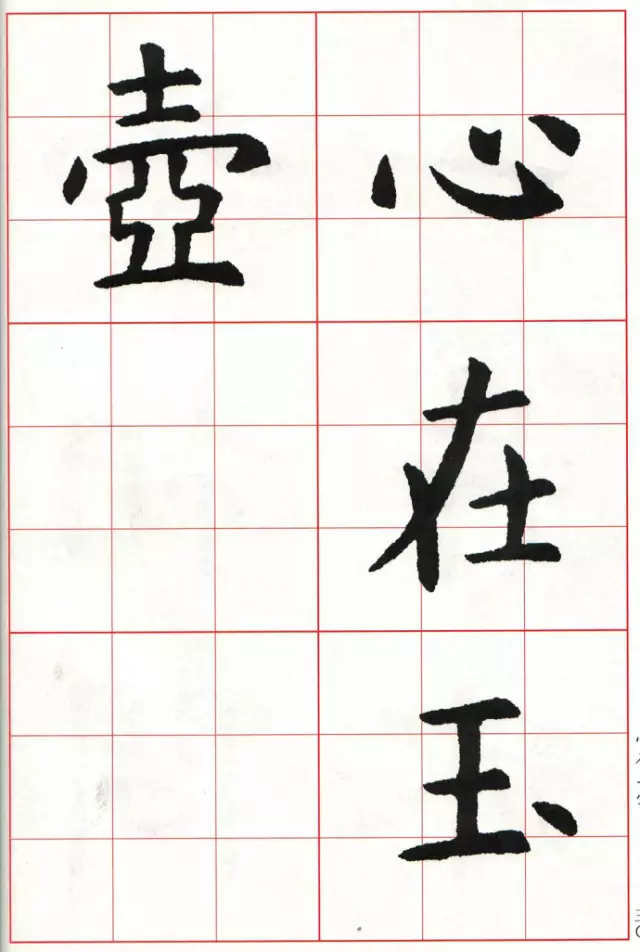 心在玉
壺